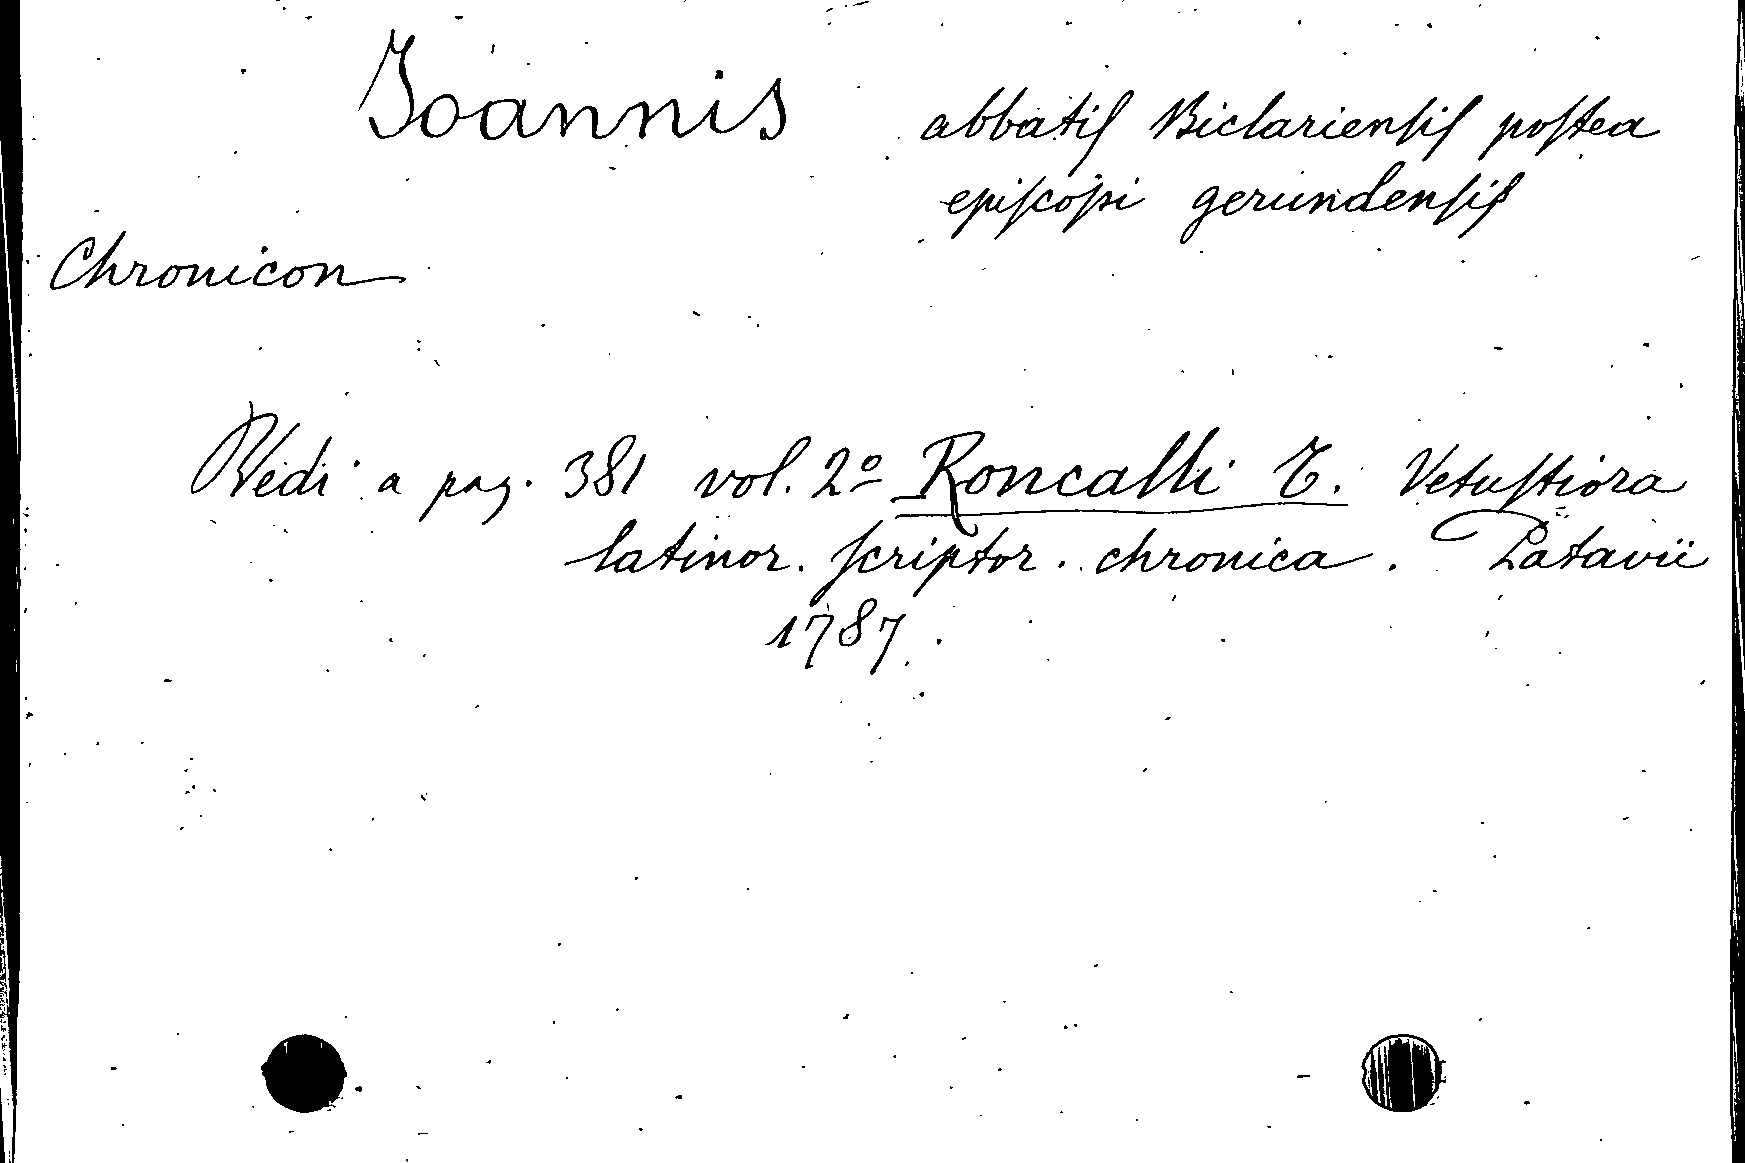 Joannis abbatiſ Biclarienſiſ poſtea
epiſcopi gerundenſiſ
Chronicon
Vedi a pag. 381 vol. 2º Roncalli T. Vetuſtiora
latinor. ſcriptor. chronica. Patavii
1787.